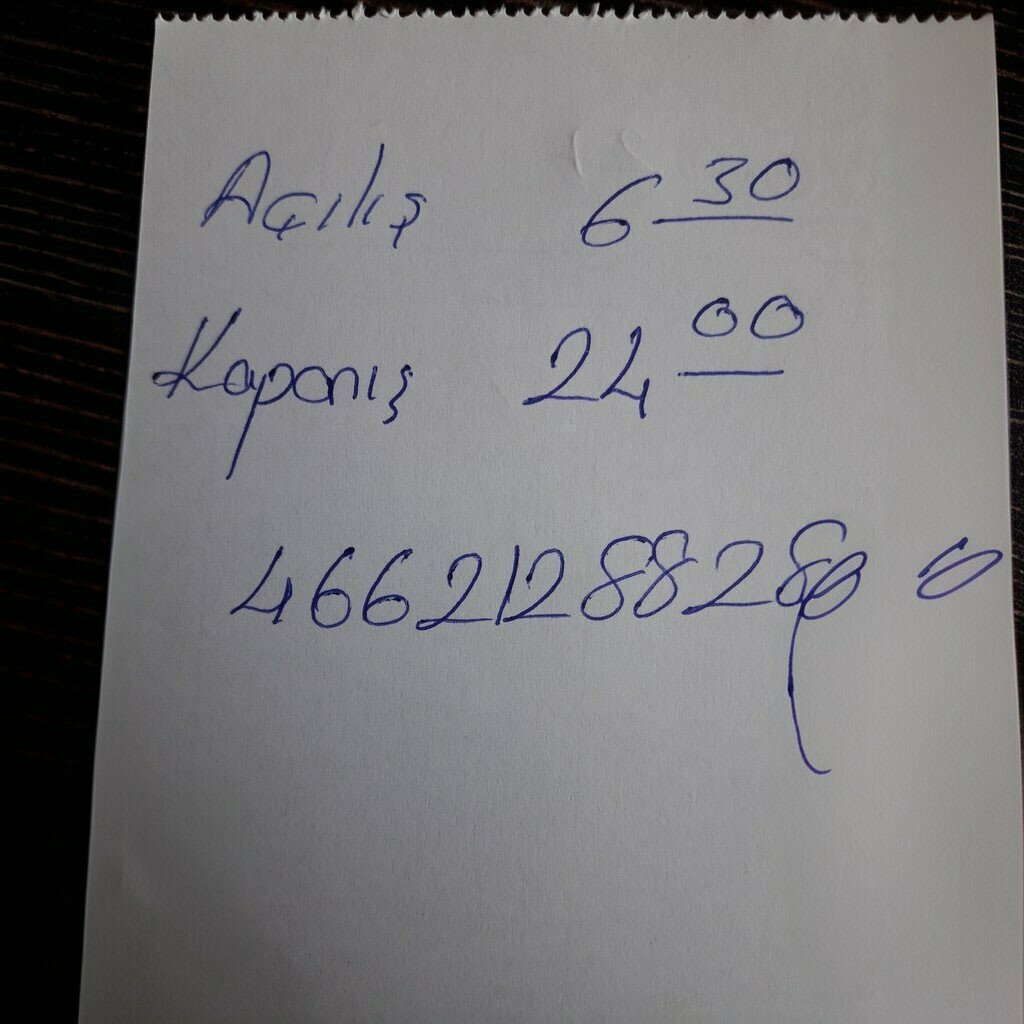 Açılış 6 30
Kapanış 24 00
4662128828